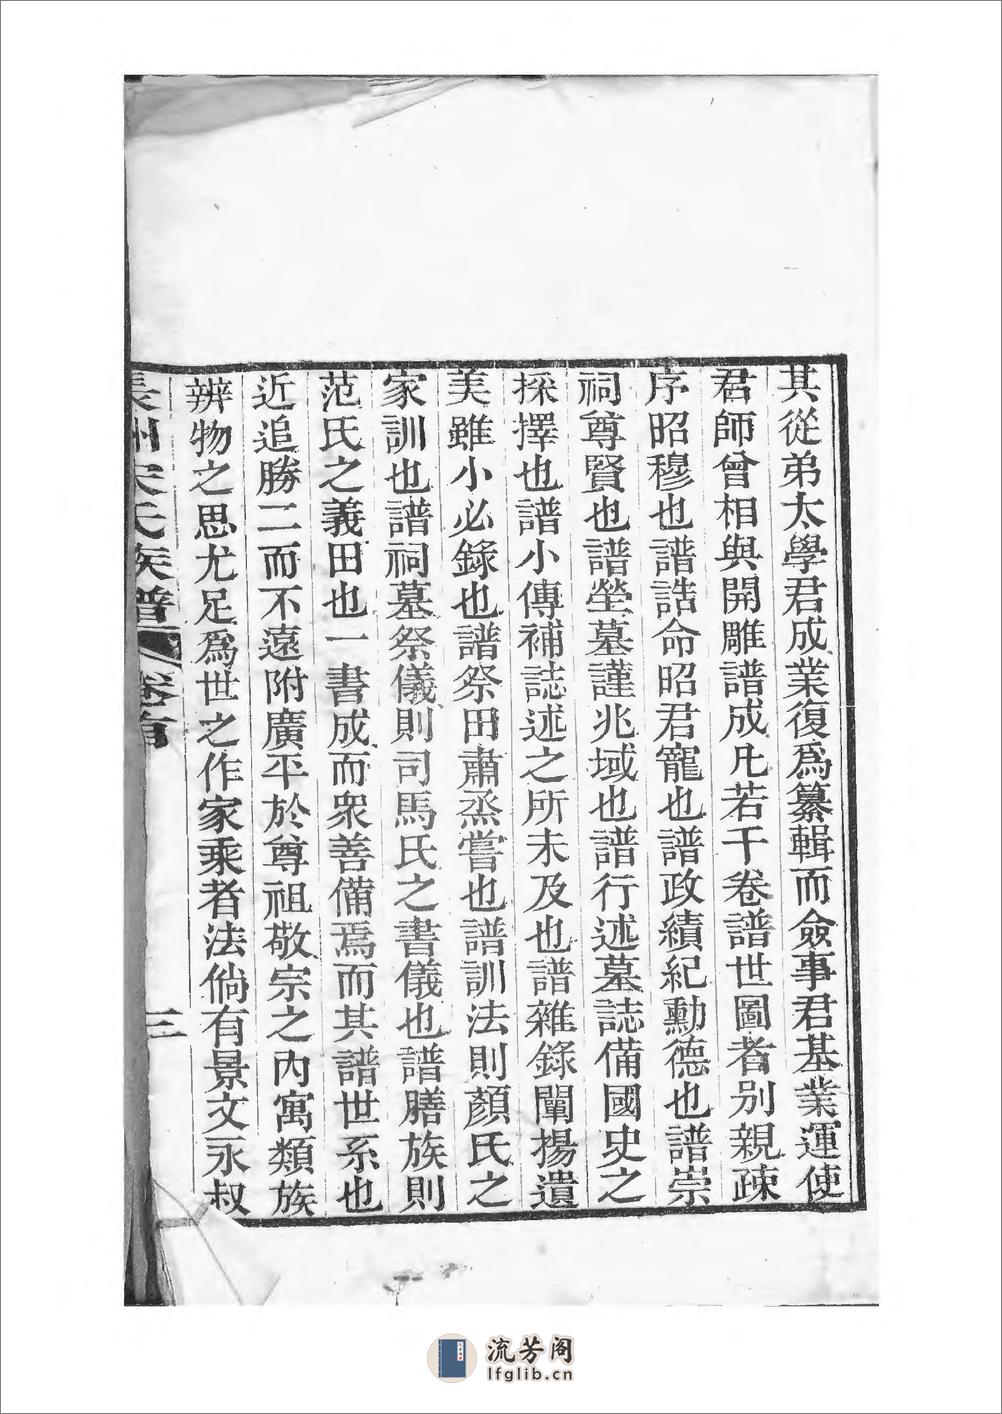 其從弟太學君成業復爲纂輯而僉事君基業運使
君師曾相與開雕譜成凡若干卷譜世圖者別親疎
序昭穆也譜誥命昭君寵也譜政績紀勳德也譜崇
祠尊賢也譜塋墓謹兆域也譜行述墓誌備國史之
採擇也譜小傳補誌述之所未及也譜雜錄闡揚遺
美雖小必錄也譜祭田肅烝嘗也譜訓法則顏氏之
家訓也譜祠墓祭儀則司馬氏之書儀也譜膳族則
范氏之義田也一書成而衆善備焉而其譜世系也
近追勝二而不遠附廣平於尊祖敬宗之內寓類族
辨物之思尤足爲世之作家乘者法倘有景文永叔
長洲宋氏族譜 卷首 三
流芳阁
lfglib.cn